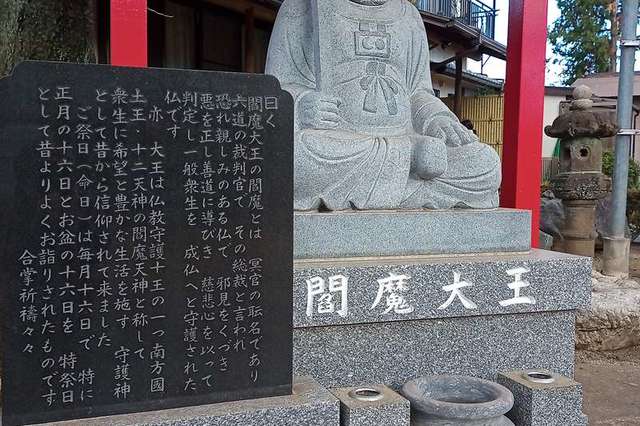 曰く
閻魔大王の閻魔とは 冥官の取名であり
六道の裁判官で その総裁と言われ
恐れ親しみのある仏で 邪見をくづき
悪を正し善道に導びき 慈悲心を以って
判定し一般衆生を 成仏へと守護された
仏です
亦 大王は仏教守護十王の一っ南方國
土王・十二天神の閻魔天神と称して
衆生に希望と豊かな生活を施す 守護神
として昔から信仰されて来ました
ご祭日(命日)は毎月十六日で 特に
正月の十六日とお盆の十六日を 特祭日
として昔よりよくお詣りされたものです
合掌祈禱々々
閻魔大王